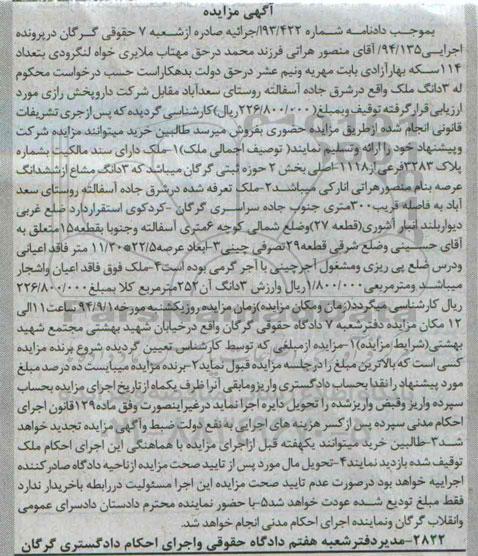 آگهی مزایده
بموجب دادنامه شماره ۹۳/۴۲۲/جرائیه صادره ازشعبه ۷ حقوقی گرگان درپرونده
اجرایی۹۴/۱۳۵/ آقای منصور هراتی فرزند محمد درحق مهتاب ملایری خواه لنگرودی بتعداد
۱۱۴سکه بهارآزادی بابت مهریه ونیم عشر درحق دولت بدهکاراست حسب درخواست محکوم
له ۳دانگ ملک واقع درشرق جاده آسفالته روستای سعدآباد مقابل شرکت داروپخش رازی مورد
ارزیابی قرار گرفته توقیف وبمبلغ(۲۲۶/۸۰۰/۰۰۰ریال)کارشناسی گردیده که پس ازجری تشریفات
قانونی انجام شده ازطریق مزایده حضوری بفروش میرسد طالبین خرید میتوانند مزایده شرکت
وپیشنهاد خود را ارائه وتسلیم نمایند( توصیف اجمالی ملک)۱-ملک دارای سند مالکیت بشماره
پلاک ۳۲۸۳فرعی از۱۱۶۸-اصلی بخش ۲ حوزه ثبتی گرگان میباشد که ۳دانگ مشاع ازششدانگ
عرصه بنام منصورهراتی انارکی میباشد۲-ملک تعرفه شده درشرق جاده آسفالته روستای سعد
آباد به فاصله قریب۳۰۰متری جنوب جاده سراسری گرگان -کردکوی استقراردارد ضلع غربی
دیواربلند انبار آشوری(قطعه ۲۷)وضلع شمالی کوچه ۶متری آسفالته وجنوبا بقطعه۱۵متعلق به
آقای حسینی وضلع شرقی قطعه۲۹تصرفی چینی۳-ابعاد عرصه۲۲/۵*۱۱/۲۰ متر فاقد اعیانی
ودرس ضلع پی ریزی ومشغول آجرچینی با آجر گرمی بوده است۴-ملک فوق فاقد اعیان واشجار
میباشد ومترمربعی۱/۸۰۰/۰۰۰ریال وارزش ۳دانگ آن۲۵۲مترمربع کلا بمبلغ۲۲۶/۸۰۰/۰۰۰
ریال کارشناسی میگردد(زمان ومکان مزایده)زمان مزایده روزیکشنبه مورخه ۹۴/۹/۱ساعت۱۱الی
۱۲ مکان مزایده دفترشعبه ۷ دادگاه حقوقی گرگان واقع درخیابان شهید بهشتی مجتمع شهید
بهشتی(شرایط مزایده)۱-مزایده ازمبلغی که توسط کارشناس تعیین گردیده شروع برنده مزایده
کسی است که بالاترین مبلغ را درجلسه مزایده قبول نماید۲-برنده مزایده میبایست ده درصد مبلغ
مورد پیشنهاد رانقدا بحساب دادگستری واریزومابقی آنرا ظرف یکماه ازتاریخ اجرای مزایده بحساب
سپرده واریز وقبض واریزشده را تحویل دایره اجرا نماید درغیراینصورت وفق ماده۱۲۹قانون اجرای
احکام مدنی سپرده پس ازکسر هزینه های اجرایی به نفع دولت ضبط وآگهی مزایده تجدید خواهد
شد۳-طالبین خرید میتوانند یکهفته قبل ازاجرای مزایده با هماهنگی این اجرای احکام ملک
توقیف شده بازدید نمایند۴-تحویل مال مورد پس از تایید صحت مزایده ازناحیه دادگاه صادرکننده
اجراییه خواهد بود درصورت عدم تایید صحت مزایده این اجرا مسئولیت دررابطه باخریدار ندارد
فقط مبلغ تودیع شده عودت خواهد شد۵-با حضور نماینده محترم دادستان دادسرای عمومی
وانقلاب گرگان ونماینده اجرای احکام مدنی انجام خواهد شد.
۲۸۲۲-مدیردفترشعبه هفتم دادگاه حقوقی واجرای احکام دادگستری گرگان